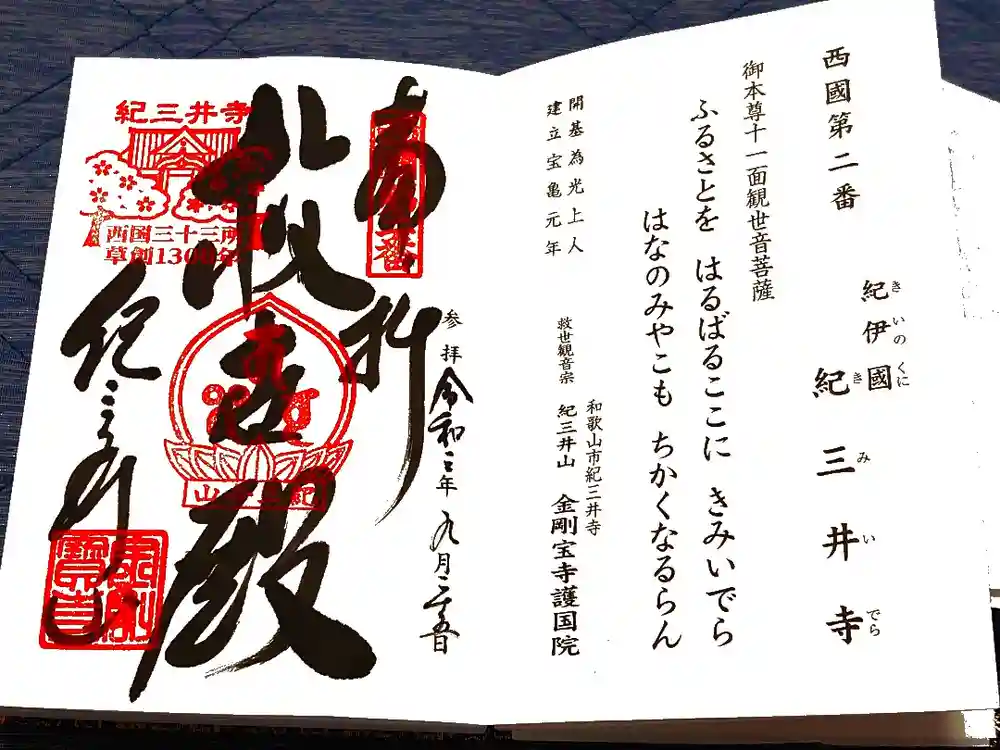 西國第二番
紀伊國
きいのくに
紀三井寺
きみいでら
御本尊十一面観世音菩薩
ふるさとを はるばるここに きみいでら
はなのみやこも ちかくなるらん
開基為光上人
建立宝亀元年
和歌山市紀三井寺
救世観音宗 紀三井山 金剛宝寺護国院
参拝 令和二年 九月二十五日
奉拝
救世殿
紀三井寺
紀三井寺
西国三十三所
草創1300年
番